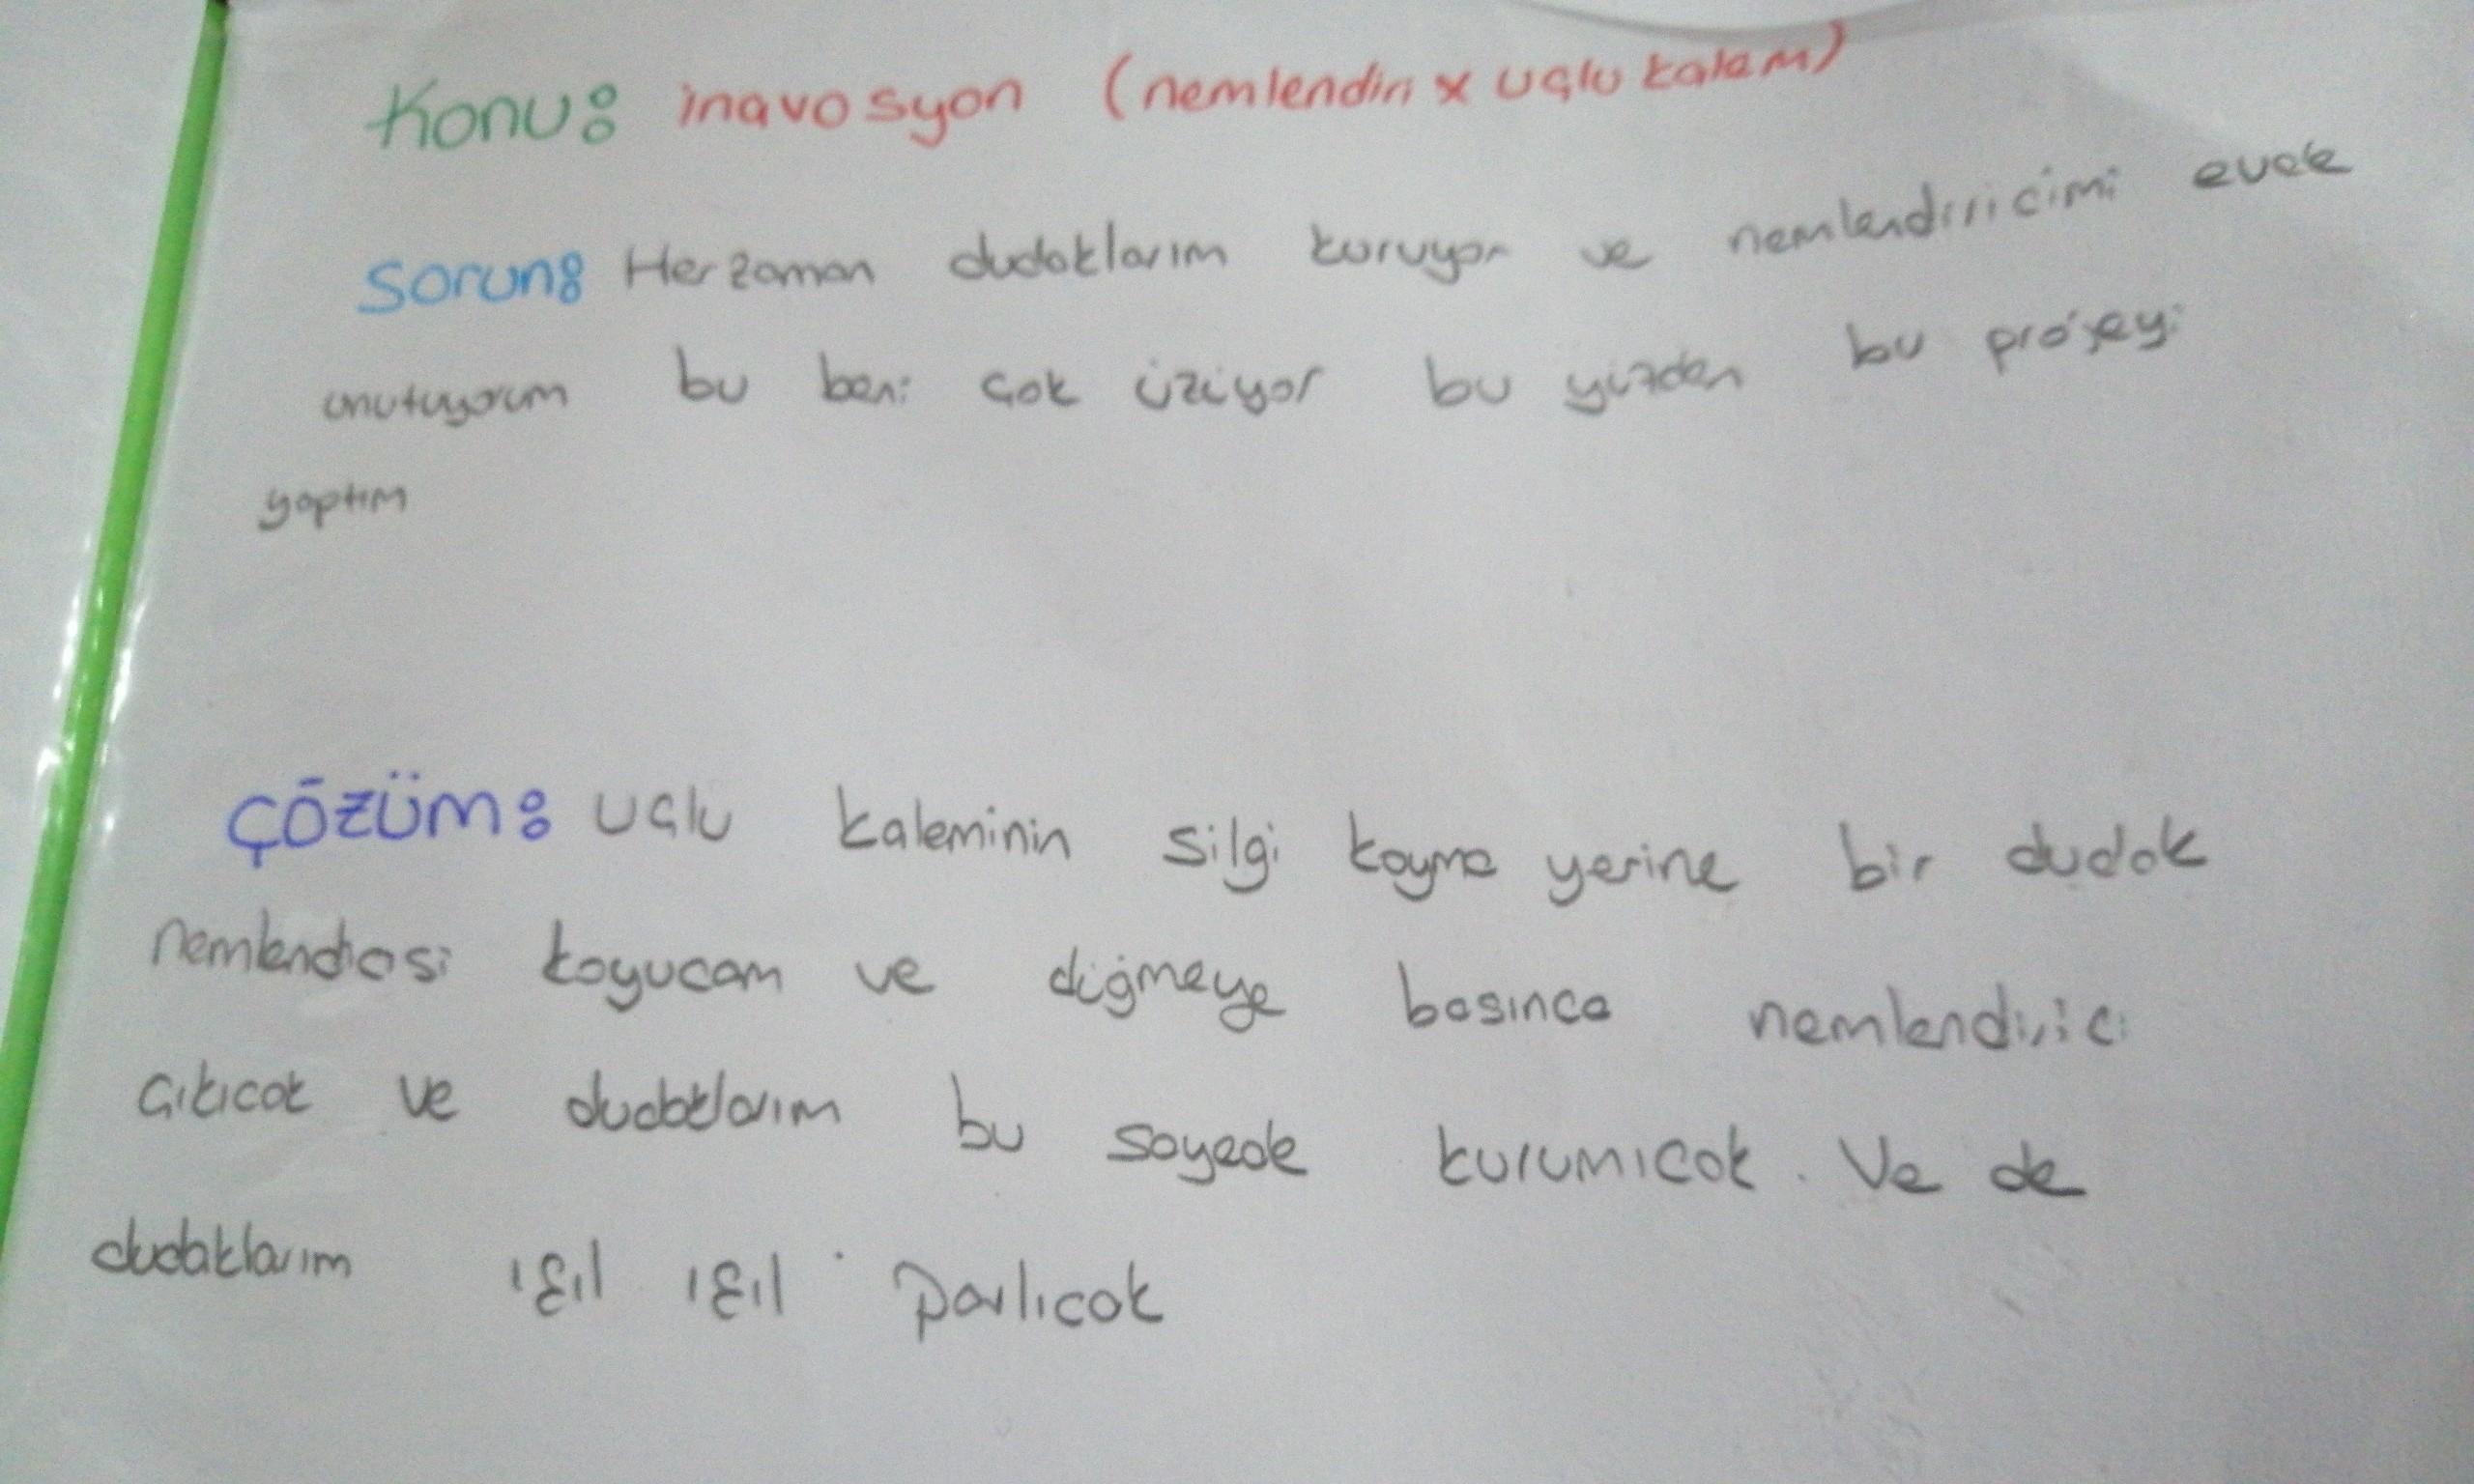 Konu: inavosyon (nemlendiri x uçlu kalem)
Sorun: Her zaman dudaklarım kuruyor ve nemlendiricimi evde
unutuyorum bu beni çok üzüyor bu yüzden bu projeyi
yaptım
ÇÖZÜM: uçlu kaleminin silgi koyma yerine bir dudak
koyucam ve düğmeye basınca nemlendirici
çıkıcak ve dudaklarım bu sayede kurumıcak. Ve de
dudaklarım ışıl ışıl parlıcak